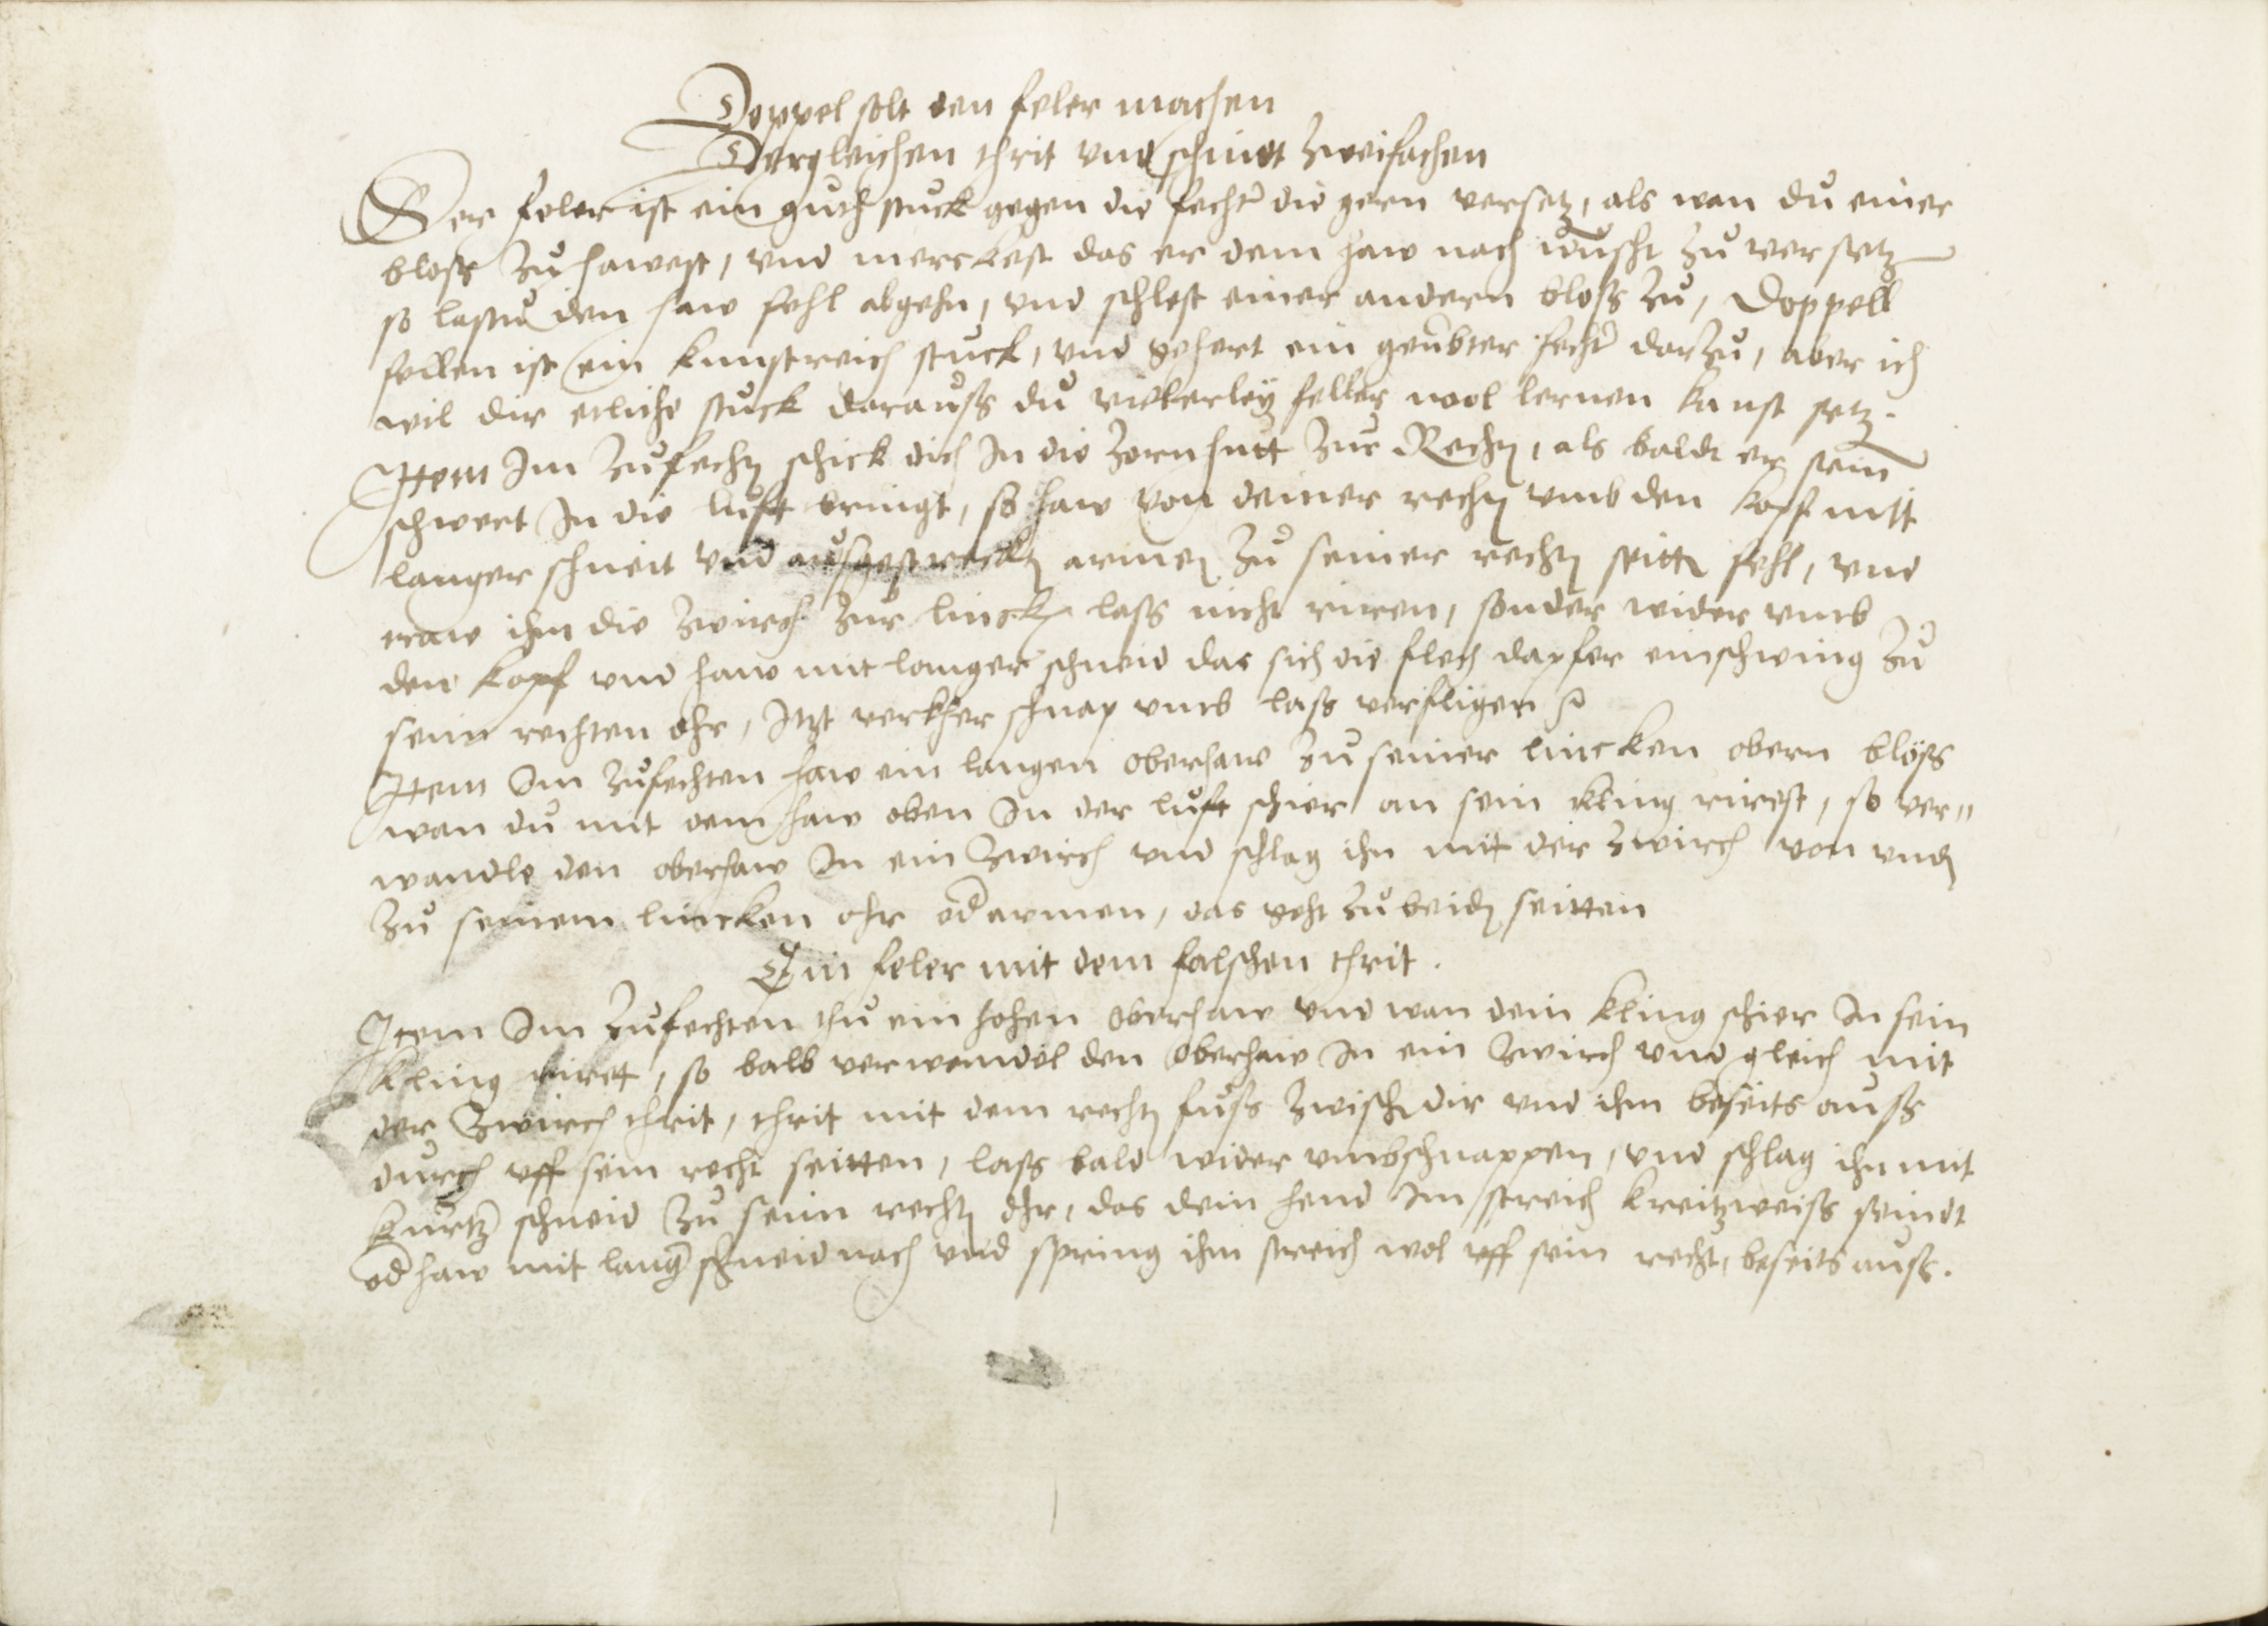 Doppel solt den feler machen
Dergleichen thrit vnd schnidt zweifachen
Der feler ist ein guth stuck gegen die fechter die gern versetz, als wan du einer
bloss zu hawest, vnd merckest das er dem haw nach wuscht zu versetz
so lastu den haw fehl abgehn, vnd schlest einer andern bloss zu, Doppell
fellen ist ein kunstreich stuck, vnd gehert ein geubter fechter darzu, aber ich
wil dir etliche stuck darauss du vielerley feller wol lernen kanst setz.
Item Im zufechten schick dich In die zornhutt zur Rechten, als baldt er sein
schwert In die lufft bringt, so haw von deiner rechten vmb den kopf mitt
langer schneit vnd aussgestreckten armen zu seiner rechten seitten fehl, vnd
traw ihm die zwirch zur lincken lass nicht riren, sonder wider vmb
den kopf vnd haw mit langer schneid das sich die flech dapfer einschwing zu
seim rechten ohr, Itzt verkher schnap vmb lass verfligen
Item Im zufechten haw ein langen oberhaw zu seiner lincken obern blöss
wan du mit dem haw oben In der luft schier an sein kling rirest, so ver„
wandle den oberhaw In ein zwirch vnd schlag ihn mit der zwirch von vnden
zu seinem lincken ohr oder armen, das geht zu beiden seitten
Ein feler mit dem falschen thrit.
Item Im zufechten thu ein hohen oberhaw vnd wan dein kling schier In sein
kling riret, so balb verwendel den oberhaw In ein zwirch vnd gleich mit
der zwirch thrit, thrit mit dem rechten fuss zwischen dir vnd ihm beseits auss
durch vff sein recht seitten, lass bald wider vmbschnappen, vnd schlag ihn mit
kurtzer schneid zu seim rechten ohr, das dein hend Im streich kreitzweiss seindt
oder haw mit langer schneid nach vnd spring ihm streich wol vff sein recht, beseits auss.